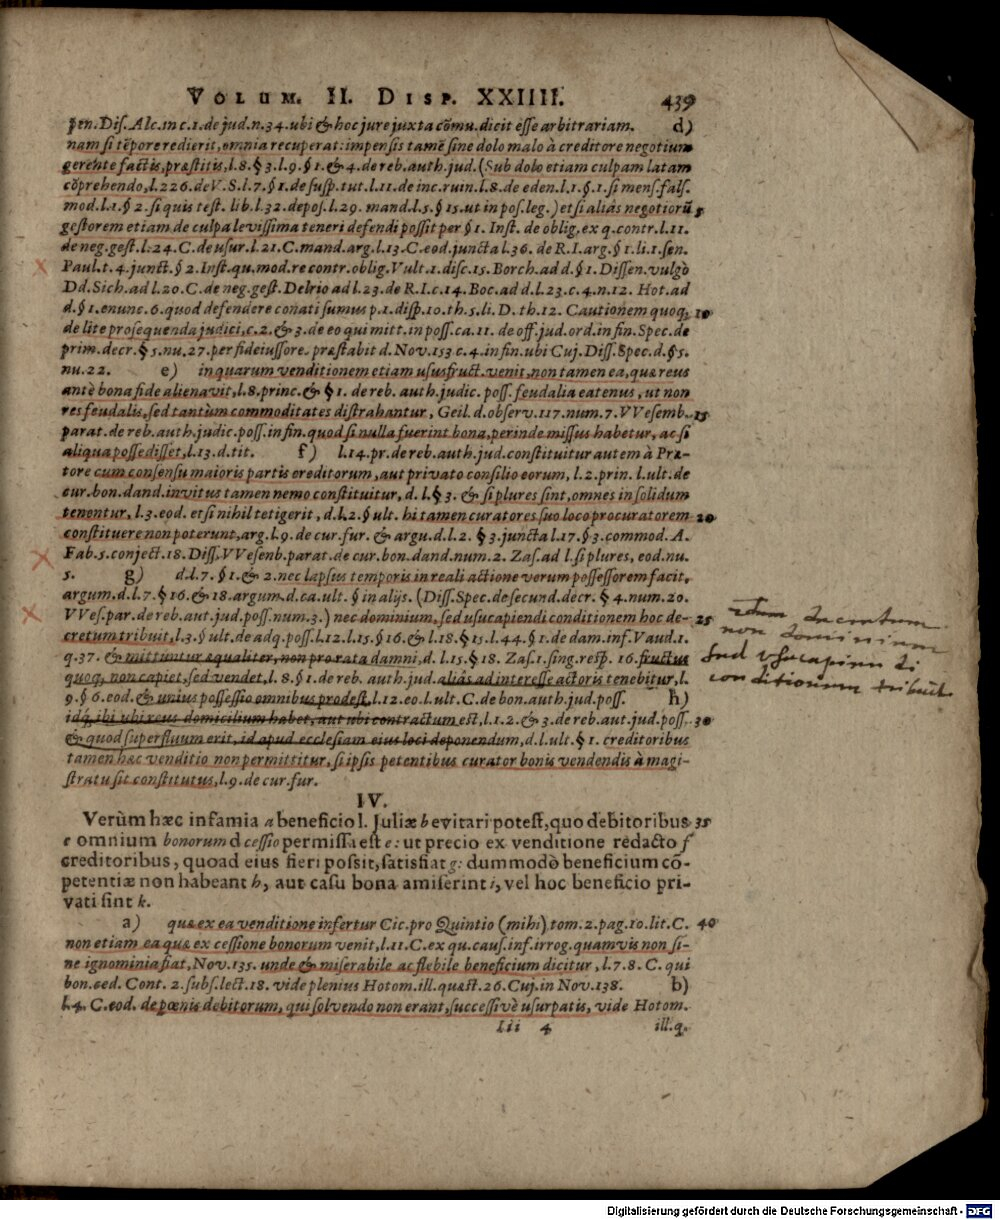 VOLUM. II. DISP. XXIIII. 439
pen. Dis. Alc. in c. 1. de jud. n. 34. ubi & hoc jure juxta cõmu. dicit esse arbitrariam. d)
nam si tẽpore redierit, omnia recuperat: impensis tamẽ sine dolo malo à creditore negotium
gerente factis, præstitis, l. 8. § 3. l. 9. § 1. & 4. de reb. auth. jud. (Sub dolo etiam culpam latam
cõprehendo, l. 226. de V. S. l. 7. § 1. de susp. tut. l. 11. de inc. ruin. l. 8. de eden. l. 1. § 1. si mens. fals.
mod. l. 1. § 2. si quis test. lib. l. 32. depos. l. 29. mand. l. 5. § 15. ut in pos. leg.) et si aliàs negotiorũ 5
gestorem etiam de culpa levissima teneri defendi possit per § 1. Inst. de oblig. ex q. contr. l. 11.
de neg. gest. l. 24. C. de usur. l. 21. C. mand. arg. l. 13. C. eod. juncta l. 36. de R. I. arg. § 1. li. 1. sen.
Paul. t. 4. junct. § 2. Inst. qu. mod. re contr. oblig. Vult. 1. disc. 15. Borch. ad d. § 1. Dissen. vulgò
Dd. Sich. ad l. 20. C. de neg. gest. Delrio ad l. 23. de R. I. c. 14. Boc. ad d. l. 23. c. 4. n. 12. Hot. ad
d. § 1. enunc. 6. quod defendere conati sumus p. 1. disp. 10. th. 5. li. D. th. 12. Cautionem quoq; 10
de lite prosequenda judici, c. 2. & 3. de eo qui mitt. in poss. ca. 11. de off. jud. ord. in fin. Spec. de
prim. decr. § 5. nu. 27. per fideiussore. præstabit d. Nov. 153 c. 4. in fin. ubi Cuj. Diss. Spec. d. § 5.
nu. 22. e) in quarum venditionem etiam ususfruct. venit, non tamen ea, quæ reus
antè bona fide alienavit, l. 8. princ. & § 1. de reb. auth. judic. poss. feudalia eatenus, ut non
res feudalis, sed tantùm commoditates distrahantur, Geil. d. observ. 117. num. 7. VVesemb. 15
parat. de reb. auth. judic. poss. in fin. quod si nulla fuerint bona, perinde missus habetur, ac si
aliqua possedisset, l. 13. d. tit. f) l. 14. pr. de reb. auth. jud. constituitur autem à Præ-
tore cum consensu maioris partis creditorum, aut privato consilio eorum, l. 2. prin. l. ult. de
cur. bon. dand. invitus tamen nemo constituitur, d. l. § 3. & si plures sint, omnes in solidum
tenentur, l. 3. eod. et si nihil tetigerit, d. l. 2. § ult. hi tamen curatores suo loco procuratorem 20
constituere non poterunt, arg. l. 9. de cur. fur. & argu. d. l. 2. § 3. juncta l. 17. § 3. commod. A.
Fab. 5. conject. 18. Diss. VVesenb. parat. de cur. bon. dand. num. 2. Zas. ad l. si plures, eod. nu.
5. g) d. l. 7. § 1. & 2. nec lapsus temporis in reali actione verum possessorem facit,
argum. d. l. 7. § 16. & 18. argum. d. ca. ult. § in alijs. (Diss. Spec. de secund. decr. § 4. num. 20.
VVes. par. de reb. aut. jud. poss. num. 3.) nec dominium, sed usucapiendi conditionem hoc de- 25
cretum tribuit, l. 3. § ult. de adq. poss. l. 12. l. 15. § 16. & l. 18. § 15. l. 44. § 1. de dam. inf. Vaud. 1.
q. 37. & mittuntur æqualiter, non pro rata damni, d. l. 15. § 18. Zas. 1. sing. resp. 16. fructus
quoq; non capiet, sed vendet, l. 8. § 1. de reb. auth. jud. aliàs ad interesse actoris tenebitur, l.
9. § 6. eod. & unius possessio omnibus prodest, l. 12. eo. l. ult. C. de bon. auth. jud. poss. h)
idq; ibi ubi reus domicilium habet, aut ubi contractum est, l. 1. 2. & 3. de reb. aut. jud. poss. 30
& quod superfluum erit, id apud ecclesiam eius loci deponendum, d. l. ult. § 1. creditoribus
tamen hæc venditio non permittitur, si ipsis petentibus curator bonis vendendis à magi-
stratu sit constitutus, l. 9. de cur. fur.
IV.
Verùm hæc infamia a beneficio l. Juliæ b evitari potest, quo debitoribus 35
c omnium bonorum d cessio permissa est e: ut precio ex venditione redacto f
creditoribus, quoad eius fieri possit, satisfiat g: dummodò beneficium cõ-
petentiæ non habeant h, aut casu bona amiserint i, vel hoc beneficio pri-
vati sint k.
a) quæ ex ea venditione infertur Cic. pro Quintio (mihi) tom. 2. pag. 10. lit. C. 40
non etiam ea quæ ex cessione bonorum venit, l. 11. C. ex qu. caus. inf. irrog. quamvis non si-
ne ignominia fiat, Nov. 135. unde & miserabile ac flebile beneficium dicitur, l. 7. 8. C. qui
bon. ced. Cont. 2. subs. lect. 18. vide plenius Hotom. ill. quæst. 26. Cuj. in Nov. 138. b)
l. 4. C. eod. de pœnis debitorum, qui solvendo non erant, successivè usurpatis, vide Hotom.
Iii 4 ill. q.
decretum
non dominium
sed usucapiendi
conditionem tribuit